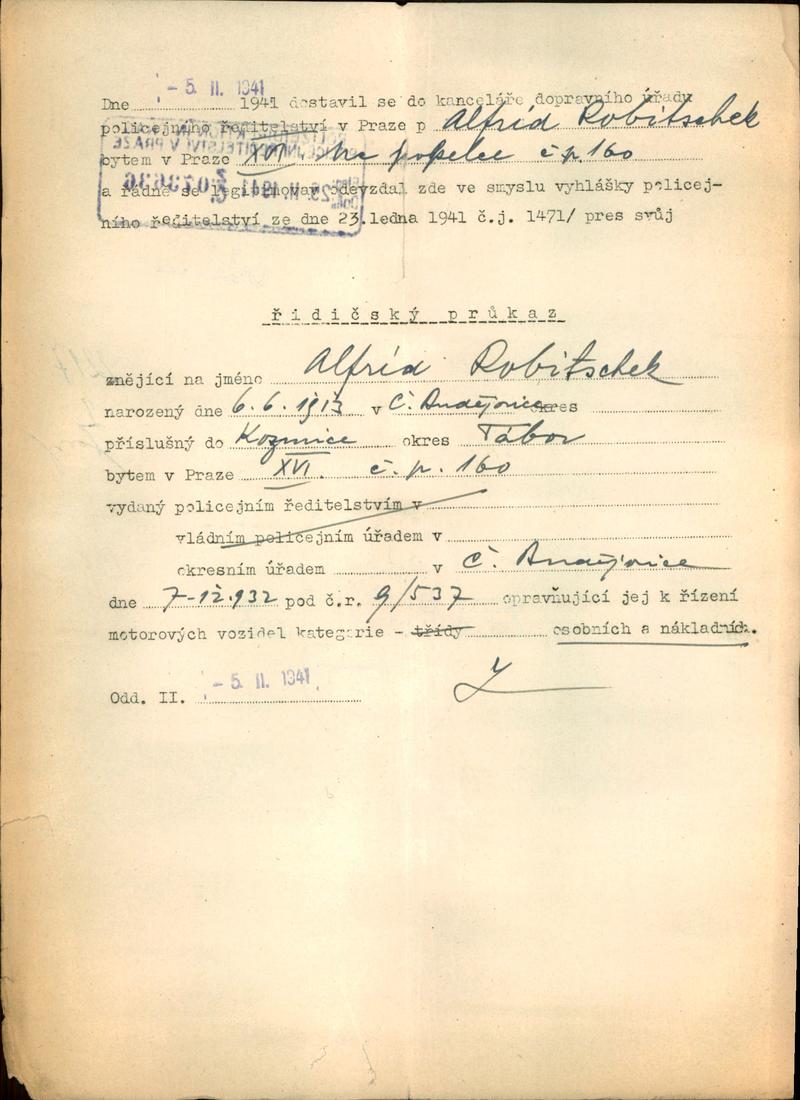 - 5. II. 1941
Dne 1941 dostavil se do kanceláře dopravního úřadu
policejního ředitelství v Praze p Alfréd Robitschek
bytem v Praze XVI. Na popelce č.p. 160
a řádně se legitimovav odevzdal zde ve smyslu vyhlášky policej-
ního ředitelství ze dne 23. ledna 1941 č.j. 1471/ pres svůj
řidičský průkaz
znějící na jméno Alfréd Robitschek
narozený dne 6.6.1913 v Č. Budějovice okres
příslušný do Kozmice okres Tábor
bytem v Praze XVI. č.p. 160
vydaný policejním ředitelstvím v
vládním policejním úřadem v
okresním úřadem v Č. Budějovice
dne 7-12.932 pod č.r. 9/537 opravňující jej k řízení
motorových vozidel kategorie - třídy osobních a nákladních.
Odd. II. - 5. II. 1941